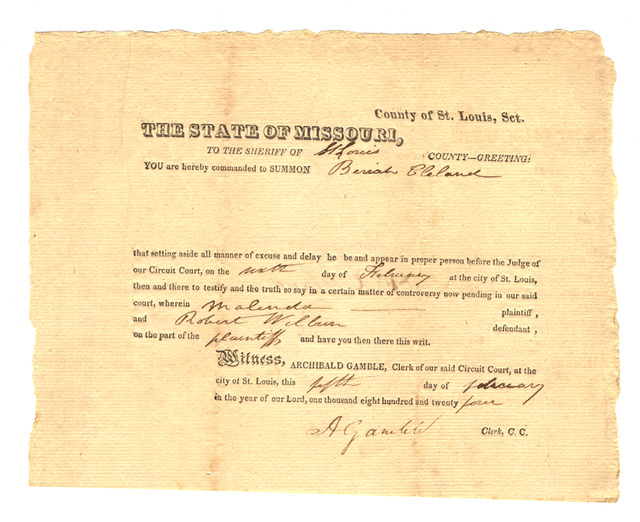 County of St. Louis, Sct.
THE STATE OF MISSOURI,
TO THE SHERIFF OF St Louis COUNTY—GREETING:
YOU are hereby commanded to SUMMON Beriah Cleland
that setting aside all manner of excuse and delay he be and appear in proper person before the Judge of
our Circuit Court, on the sixth day of February at the city of St. Louis,
then and there to testify and the truth so say in a certain matter of controversy now pending in our said
court, wherein Malinda plaintiff,
and Robert Wilburn defendant,
on the part of the plaintiff and have you then there this writ.
Witness, ARCHIBALD GAMBLE, Clerk of our said Circuit Court, at the
city of St. Louis, this fifth day of february
in the year of our Lord, one thousand eight hundred and twenty four
A Gamble Clerk, C. C.